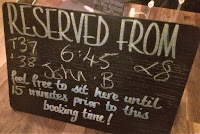 RESERVED FROM
T37 6:45
T38 John.B x8
feel free to sit here until
15 minutes prior to this
boozing time!